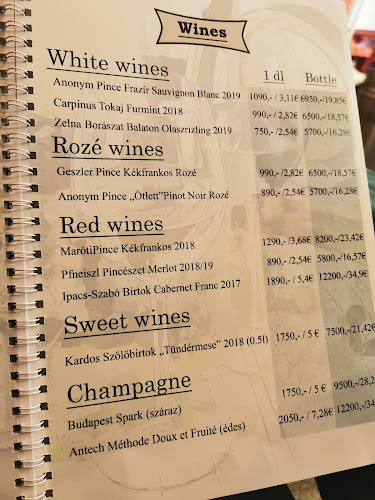 Wines
White wines 1 dl Bottle
Anonym Pince Frazír Sauvignon Blanc 2019 1090,-/ 3,11€ 6950,-/19,85€
Carpinus Tokaj Furmint 2018 990,-/ 2,82€ 6500,-/18,57€
Zelna Borászat Balaton Olaszrizling 2019 750,-/ 2,54€ 5700,-/16,28€
Rozé wines
Geszler Pince Kékfrankos Rozé 990,-/2,82€ 6500,-/18,57€
Anonym Pince „Ötlett"Pinot Noir Rozé 890,-/ 2,54€ 5700,-/16,28€
Red wines
MarótiPince Kékfrankos 2018 1290,-/3,68€ 8200,-/23,42€
Pfneiszl Pincészet Merlot 2018/19 890,-/ 2,54€ 5800,-/16,57€
Ipacs-Szabó Birtok Cabernet Franc 2017 1890,-/ 5,4€ 12200,-/34,9€
Sweet wines
Kardos Szőlőbirtok „Tündérmese" 2018 (0.5l) 1750,-/ 5 € 7500,-/21,42€
Champagne
Budapest Spark (száraz) 1750,-/ 5 € 9500,-/28,2
Antech Méthode Doux et Fruité (édes) 2050,-/ 7,28€ 12200,-/34